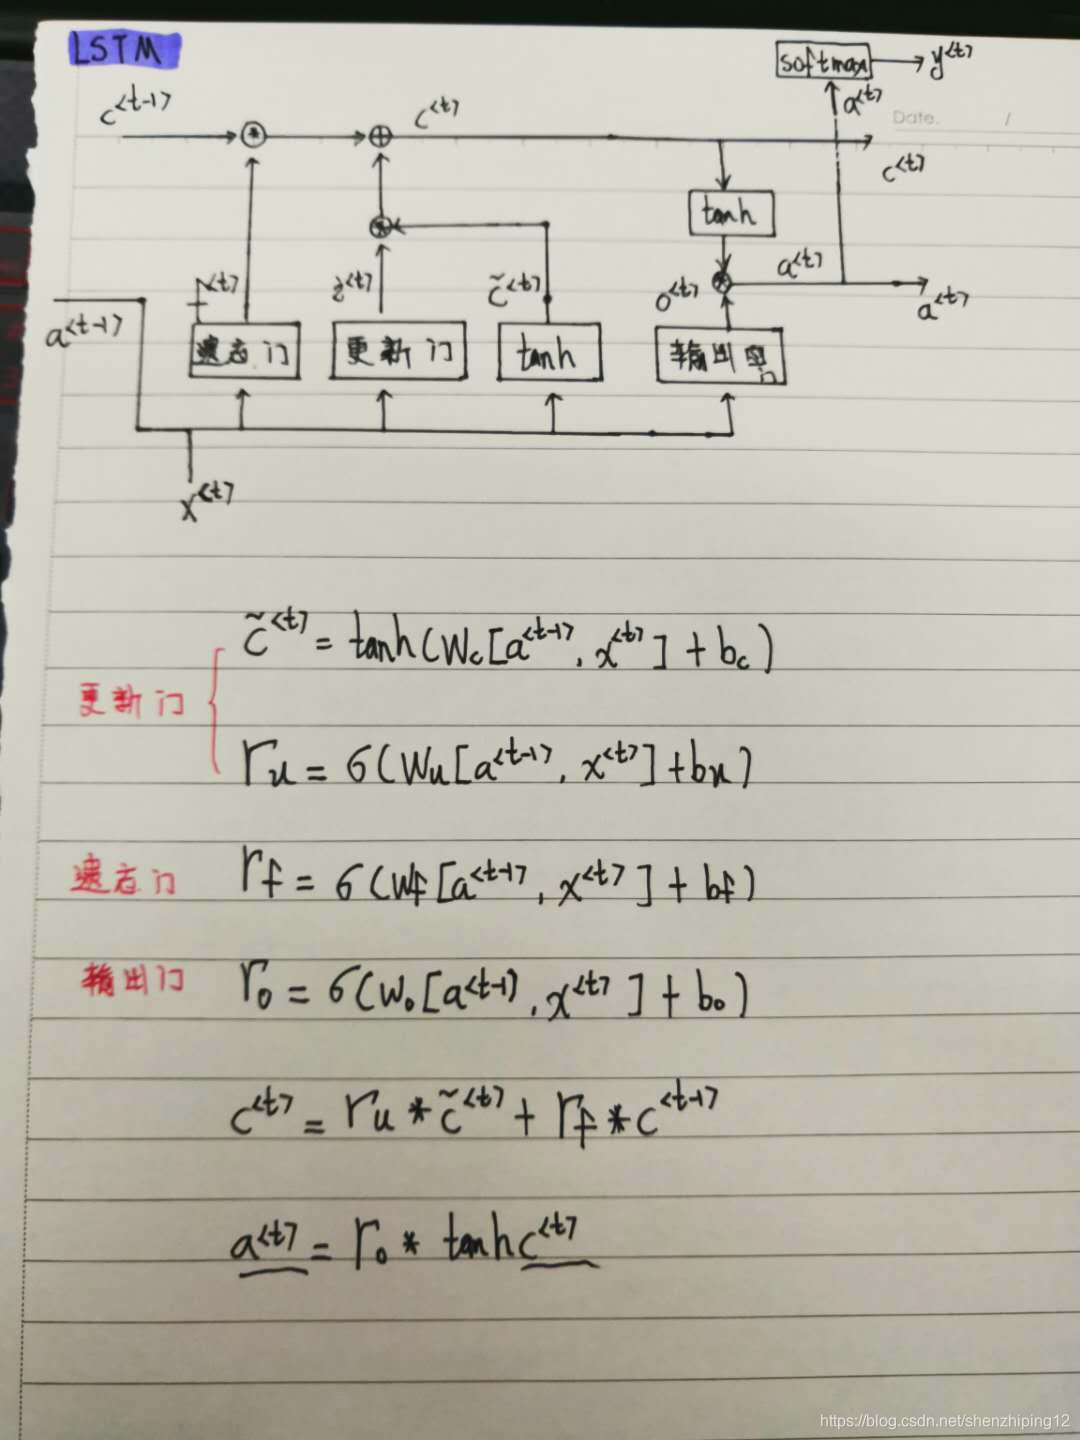 LSTM
softmax y<t>
c<t-1> c<t> a<t>
Date. /
c<t>
tanh
f<t> i<t> c̃<t> o<t> a<t>
a<t-1> a<t>
遗忘门 更新门 tanh 输出门
x<t>
c̃<t> = tanh(Wc[a<t-1>, x<t>] + bc)
更新门
ru = σ(Wu[a<t-1>, x<t>] + bu)
遗忘门 rf = σ(Wf[a<t-1>, x<t>] + bf)
输出门 ro = σ(Wo[a<t-1), x<t>] + bo)
c<t> = ru * c̃<t> + rf * c<t-1>
a<t> = ro * tanh c<t>
https://blog.csdn.net/shenzhiping12